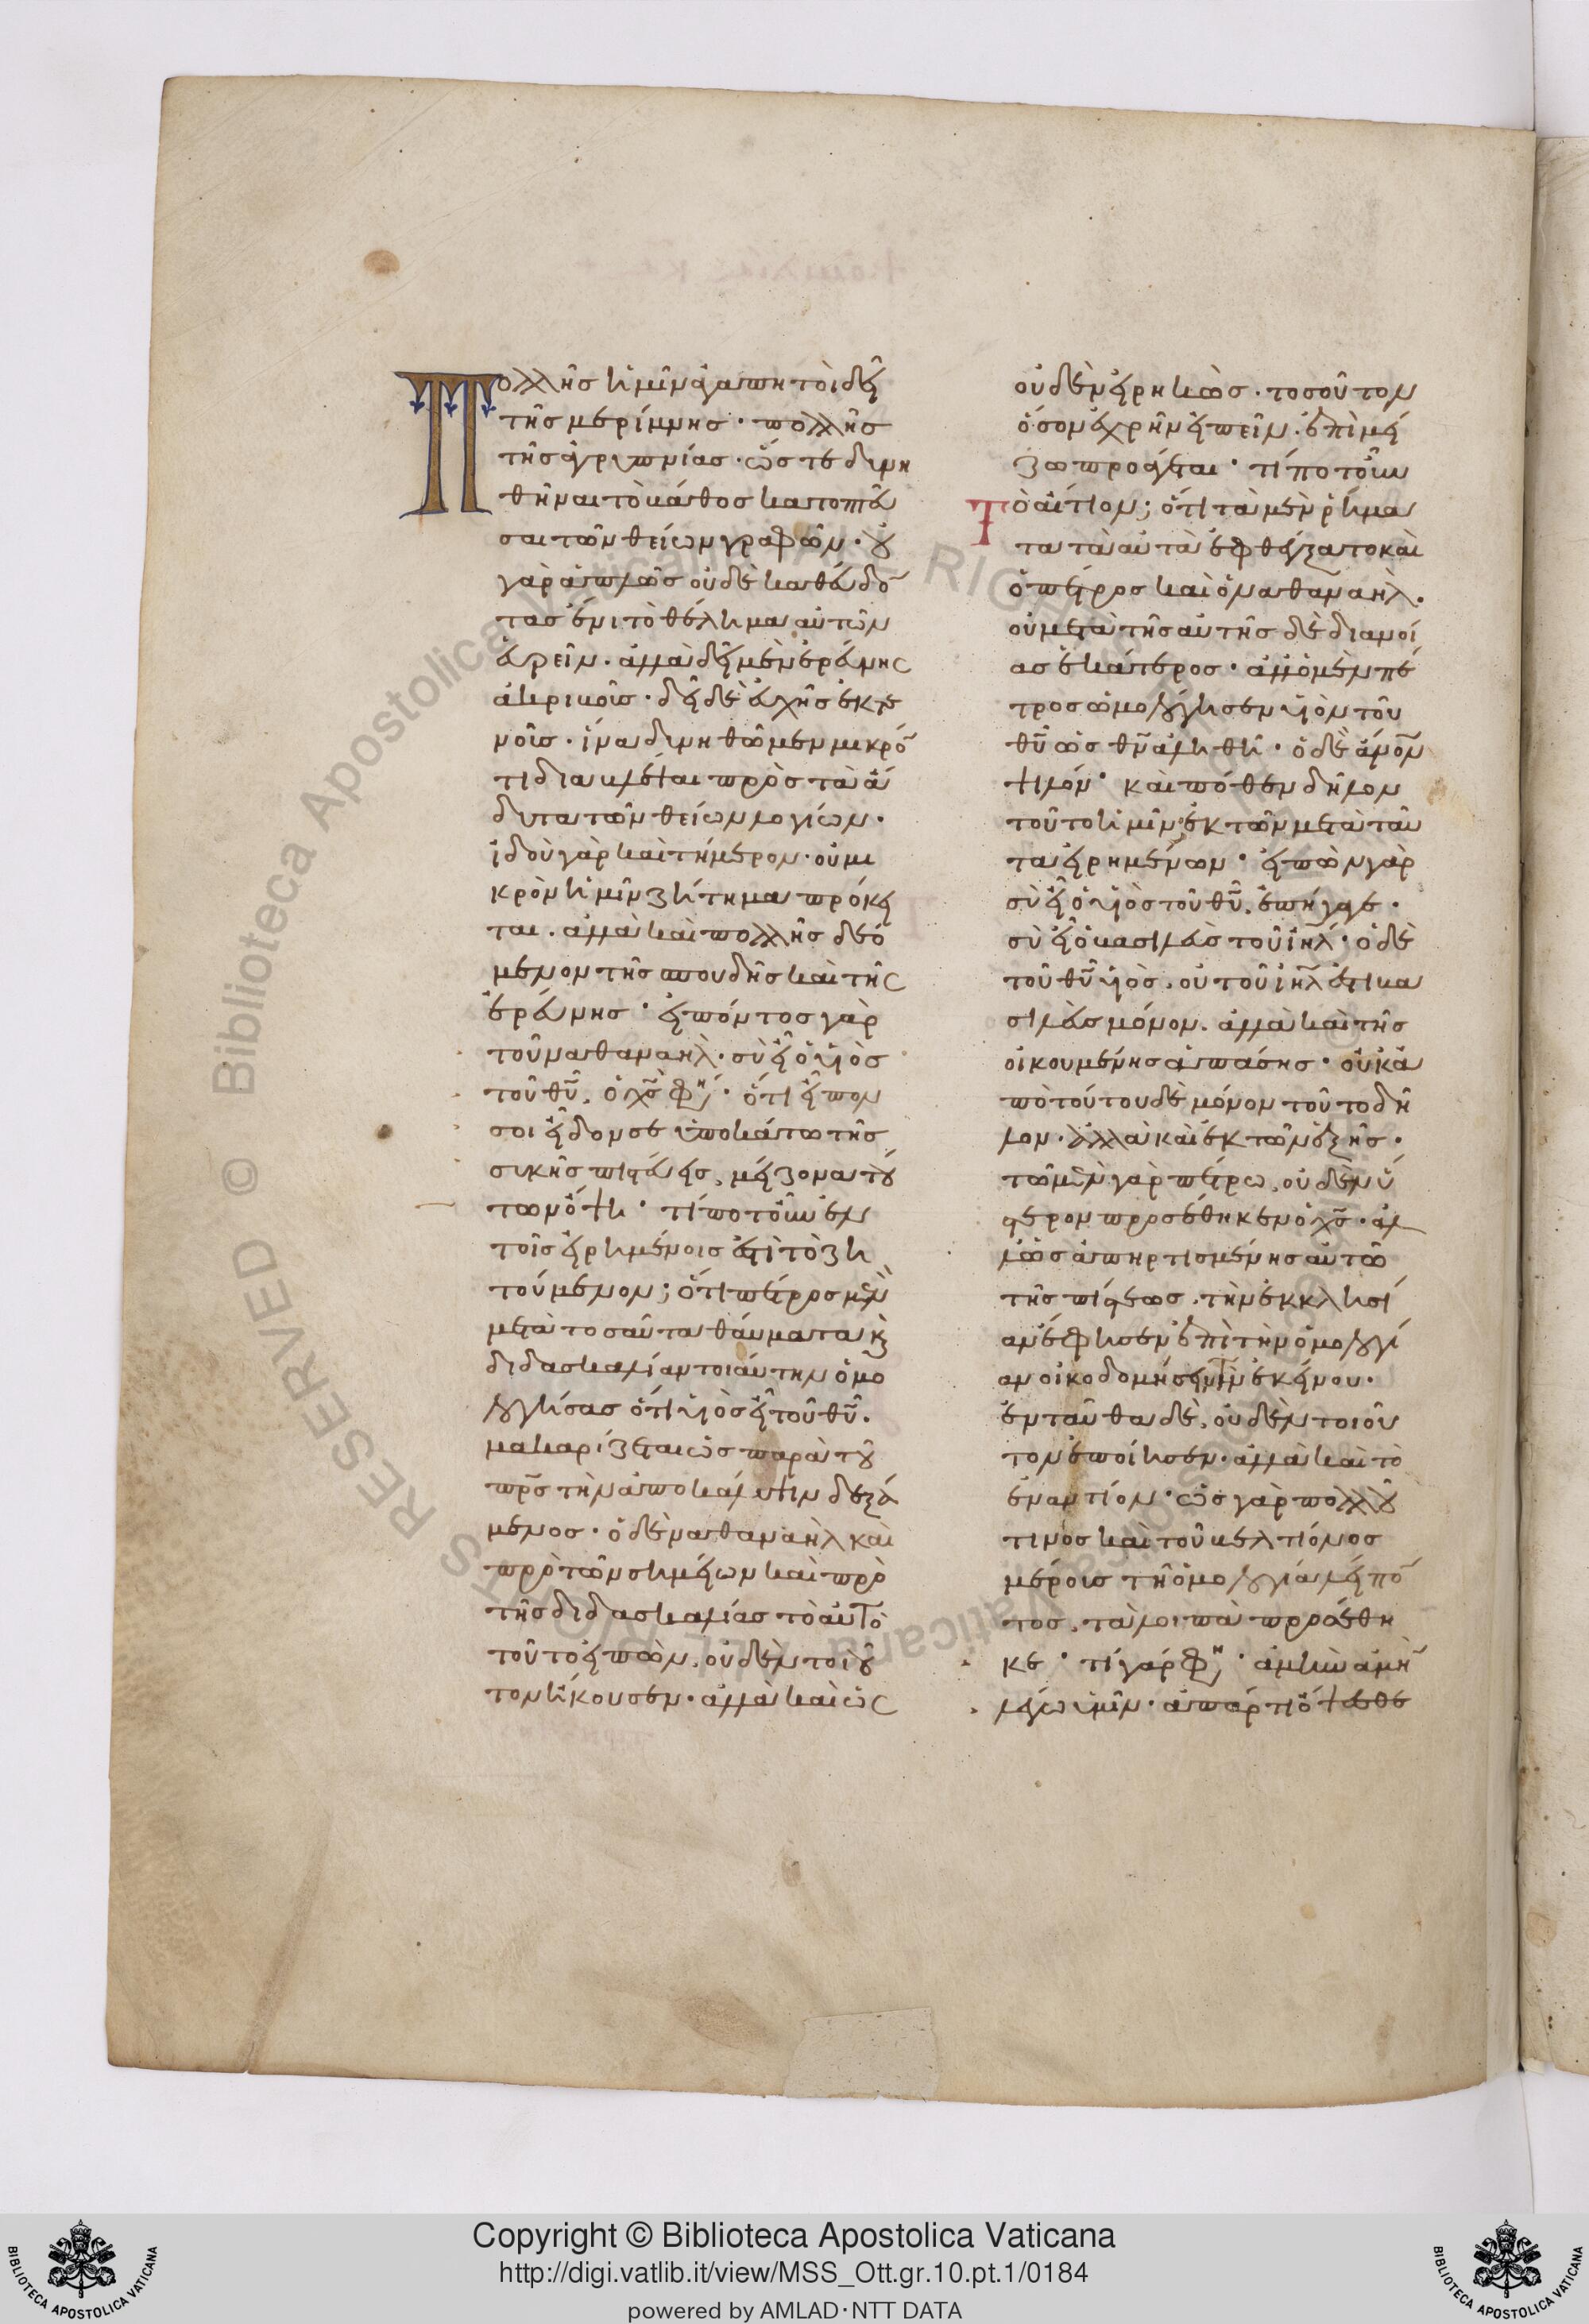 Πολλῆς ἡμῖν ἀγαπητοὶ δεῖ
τῆς μερίμνης · πολλῆς
τῆς ἀγρυπνίας · ὥστε δυνη
θῆναι τὸ βάθος κατοπτεῦ
σαι τῶν θείων γραφῶν · οὐ
γὰρ ἁπλῶς οὐδὲ καθεύδο̅
τας ἔνι τὸ θέλημα αὐτῶν
εὑρεῖν · ἀλλὰ δεῖ μὲν ἐρεύνης
ἀκριβοῦς · δεῖ δὲ εὐχῆς ἐκτε
νοῦς · ἵνα δυνηθῶμεν μικρό̅
τι διαβλέψαι πρὸς τὰ ἄ
δυτα τῶν θείων λογίων ·
ἰδοὺ γὰρ καὶ τήμερον · οὐ μι
κρὸν ἡμῖν ζήτημα πρόκει
ται · ἀλλὰ καὶ πολλῆς δεό
μενον τῆς σπουδῆς καὶ τῆς
ἐρεύνης · εἰπόντος γὰρ
τοῦ ναθαναὴλ · σὺ εἶ ὁ υἱὸς
τοῦ θῦ, ὁ χς φη · ὅτι εἶπον
σοι εἶδον σε ὑποκάτω τῆς
συκῆς πιστεύεις, μείζονα τού
των ὄψη · τί ποτ οὖν ἐν
τοῖς εἰρημένοις ἐστὶ τὸ ζη
τούμενον; ὅτι πέτρος μὲν
μετὰ τοσαῦτα θαύματα κ
διδασκαλίαν τοιαύτην ὁμο
λογήσας ὅτι υἱὸς εἶ τοῦ θῦ ·
μακαρίζεται ὡς παρὰ τοῦ
πρς τὴν ἀποκάλυψιν δεξά
μενος · ὁ δὲ ναθαναὴλ καὶ
πρὸ τῶν σημείων καὶ πρὸ
τῆς διδασκαλίας τὸ αὐτὸ
τοῦτο εἰπὼν, οὐδὲν τοιοῦ
τον ἤκουσεν · ἀλλὰ καὶ ὡς
οὐδὲν εἰρηκὼς · τοσοῦτον
ὅσον ἐχρῆν εἰπεῖν · ἐπὶ μεί
ζω προάγεται · τί ποτ οὖν
Τὸ αἴτιον; ὅτι τὰ μὲν ῥήμα
τα τὰ αὐτὰ ἐφθέγξατο καὶ
ὁ πέτρος καὶ ὁ ναθαναήλ ·
οὐ μετὰ τῆς αὐτῆς δὲ διανοί
ας ἑκάτερος · ἀλλ ὁ μὲν πέ
τρος ὡμολόγησεν υἱὸν τοῦ
θῦ ὡς θν ἀληθῆ · ὁ δὲ ἄνον
ψιλόν · καὶ πόθεν δῆλον
τοῦτο ἡμῖν; ἐκ τῶν μετὰ ταῦ
τα εἰρημένων · εἰπὼν γὰρ
σὺ εἶ ὁ υἱὸς τοῦ θῦ, ἐπήγαγε ·
σὺ εἶ ὁ βασιλεὺς τοῦ ιηλ · ὁ δὲ
τοῦ θῦ υἱὸς, οὐ τοῦ ιηλ ἐστὶ βα
σιλεὺς μόνον · ἀλλὰ καὶ τῆς
οἰκουμένης ἁπάσης · οὐκ ἀ
πὸ τούτου δὲ μόνον τοῦτο δῆ
λον · ἀλλὰ καὶ ἐκ τῶν ἑξῆς ·
τῶ μὲν γὰρ πέτρω, οὐδὲν ὕ
στερον προσέθηκεν ὁ χς · ἀλλ
ὡς ἀπηρτισμένης αὐτῶ
τῆς πίστεως · τὴν ἐκκλησί
αν ἔφησεν ἐπὶ τὴν ὁμολογί
αν οἰκοδομήσειν τὴν ἐκείνου ·
ἐνταῦθα δὲ, οὐδὲν τοιοῦ
τον ἐποίησεν · ἀλλὰ καὶ τὸ
ἐναντίον · ὡς γὰρ πολλοῦ
τινος καὶ τοῦ βελτίονος
μέρους τῆ ὁμολογία λείπο̅
τος, τὰ λοιπὰ προσέθη
κε · τί γάρ φη · ἀμὴν ἀμὴ̅
λέγω ὑμῖν · ἀπ άρτι ὄψεσθε
Copyright © Biblioteca Apostolica Vaticana
http://digi.vatlib.it/view/MSS_Ott.gr.10.pt.1/0184
powered by AMLAD·NTT DATA
BIBLIOTECA APOSTOLICA VATICANA
BIBLIOTECA APOSTOLICA VATICANA